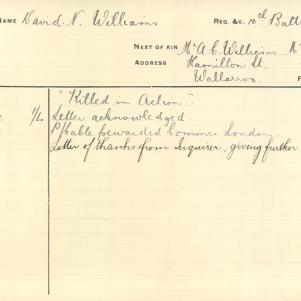 NAME David N. Williams REG. &C. 10th Batt
NEXT OF KIN Mr A. C. Williams
ADDRESS Hamilton St.
Wallaroo.
"Killed in Action".
1/L Letter acknowledged.
P/Cable forwarded Commrs London.
Letter of thanks from Inquirer, giving further